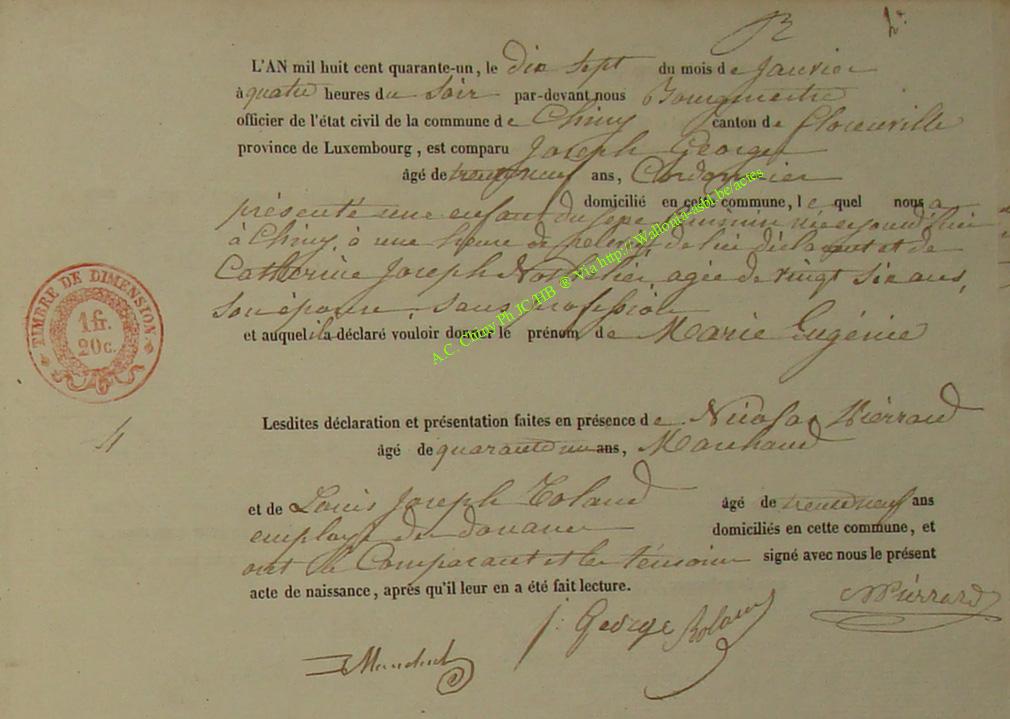 L'AN mil huit cent quarante-un, le dix sept du mois de Janvier
à quatre heures du soir par-devant nous Bourgmestre
officier de l'état civil de la commune de Chiny canton de florenville
province de Luxembourg, est comparu Joseph George
âgé de trente neuf ans, Cordonnier
domicilié en cette commune, le quel nous a
présenté une enfant du sexe féminin née aujourd'hui
à Chiny, à une heure de relevée, de lui déclarant et de
Catherine Joseph agée de vingt six ans,
son épouse, sans profession
et auquel il a déclaré vouloir donner le prénom de Marie Eugénie
TIMBRE DE DIMENSION
1 fr.
20 c.
4
Lesdites déclaration et présentation faites en présence de Nicolas Piérrard
âgé de quarante un ans, Marchand
et de Louis Joseph Roland âgé de trente neuf ans
employé des douanes domiciliés en cette commune, et
ont le Comparant et les témoins signé avec nous le présent
acte de naissance, après qu'il leur en a été fait lecture.
J: George Roland NPiérrard
A.C. Chiny Ph JC/HB ® Via http://Wallonia-asbl.be/actes